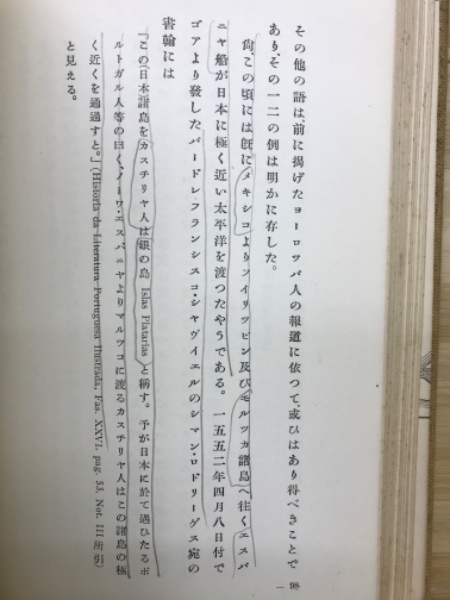 その他の語は、前に掲げたヨーロッパ人の報道に依つて、或ひはあり得べきことで
あり、その一二の例は明かに存した。
尙、この頃には旣にメキシコよりフイリツピン及びモルツカ諸島へ往くエスパ
ニヤ船が日本に極く近い太平洋を渡つたやうである。一五五二年四月八日付で
ゴアより發したパードレ・フランシスコ・シャヴイエルのシマン・ロドリーゲス宛の
書翰には
「この(日本諸島をカスチリヤ人は銀の島 Islas Platarias と稱す。予が日本に於て遇ひたるポ
ルトガル人等の曰く、ノーワ・エスパニヤよりマルツコに渡るカスチリヤ人はこの諸島の極
く近くを通過すと。」(Historia da Literatura Portuguesa Ilustrada, Fas. XXVI. pag. 53. Not. III 所引)
と見える。
— 98